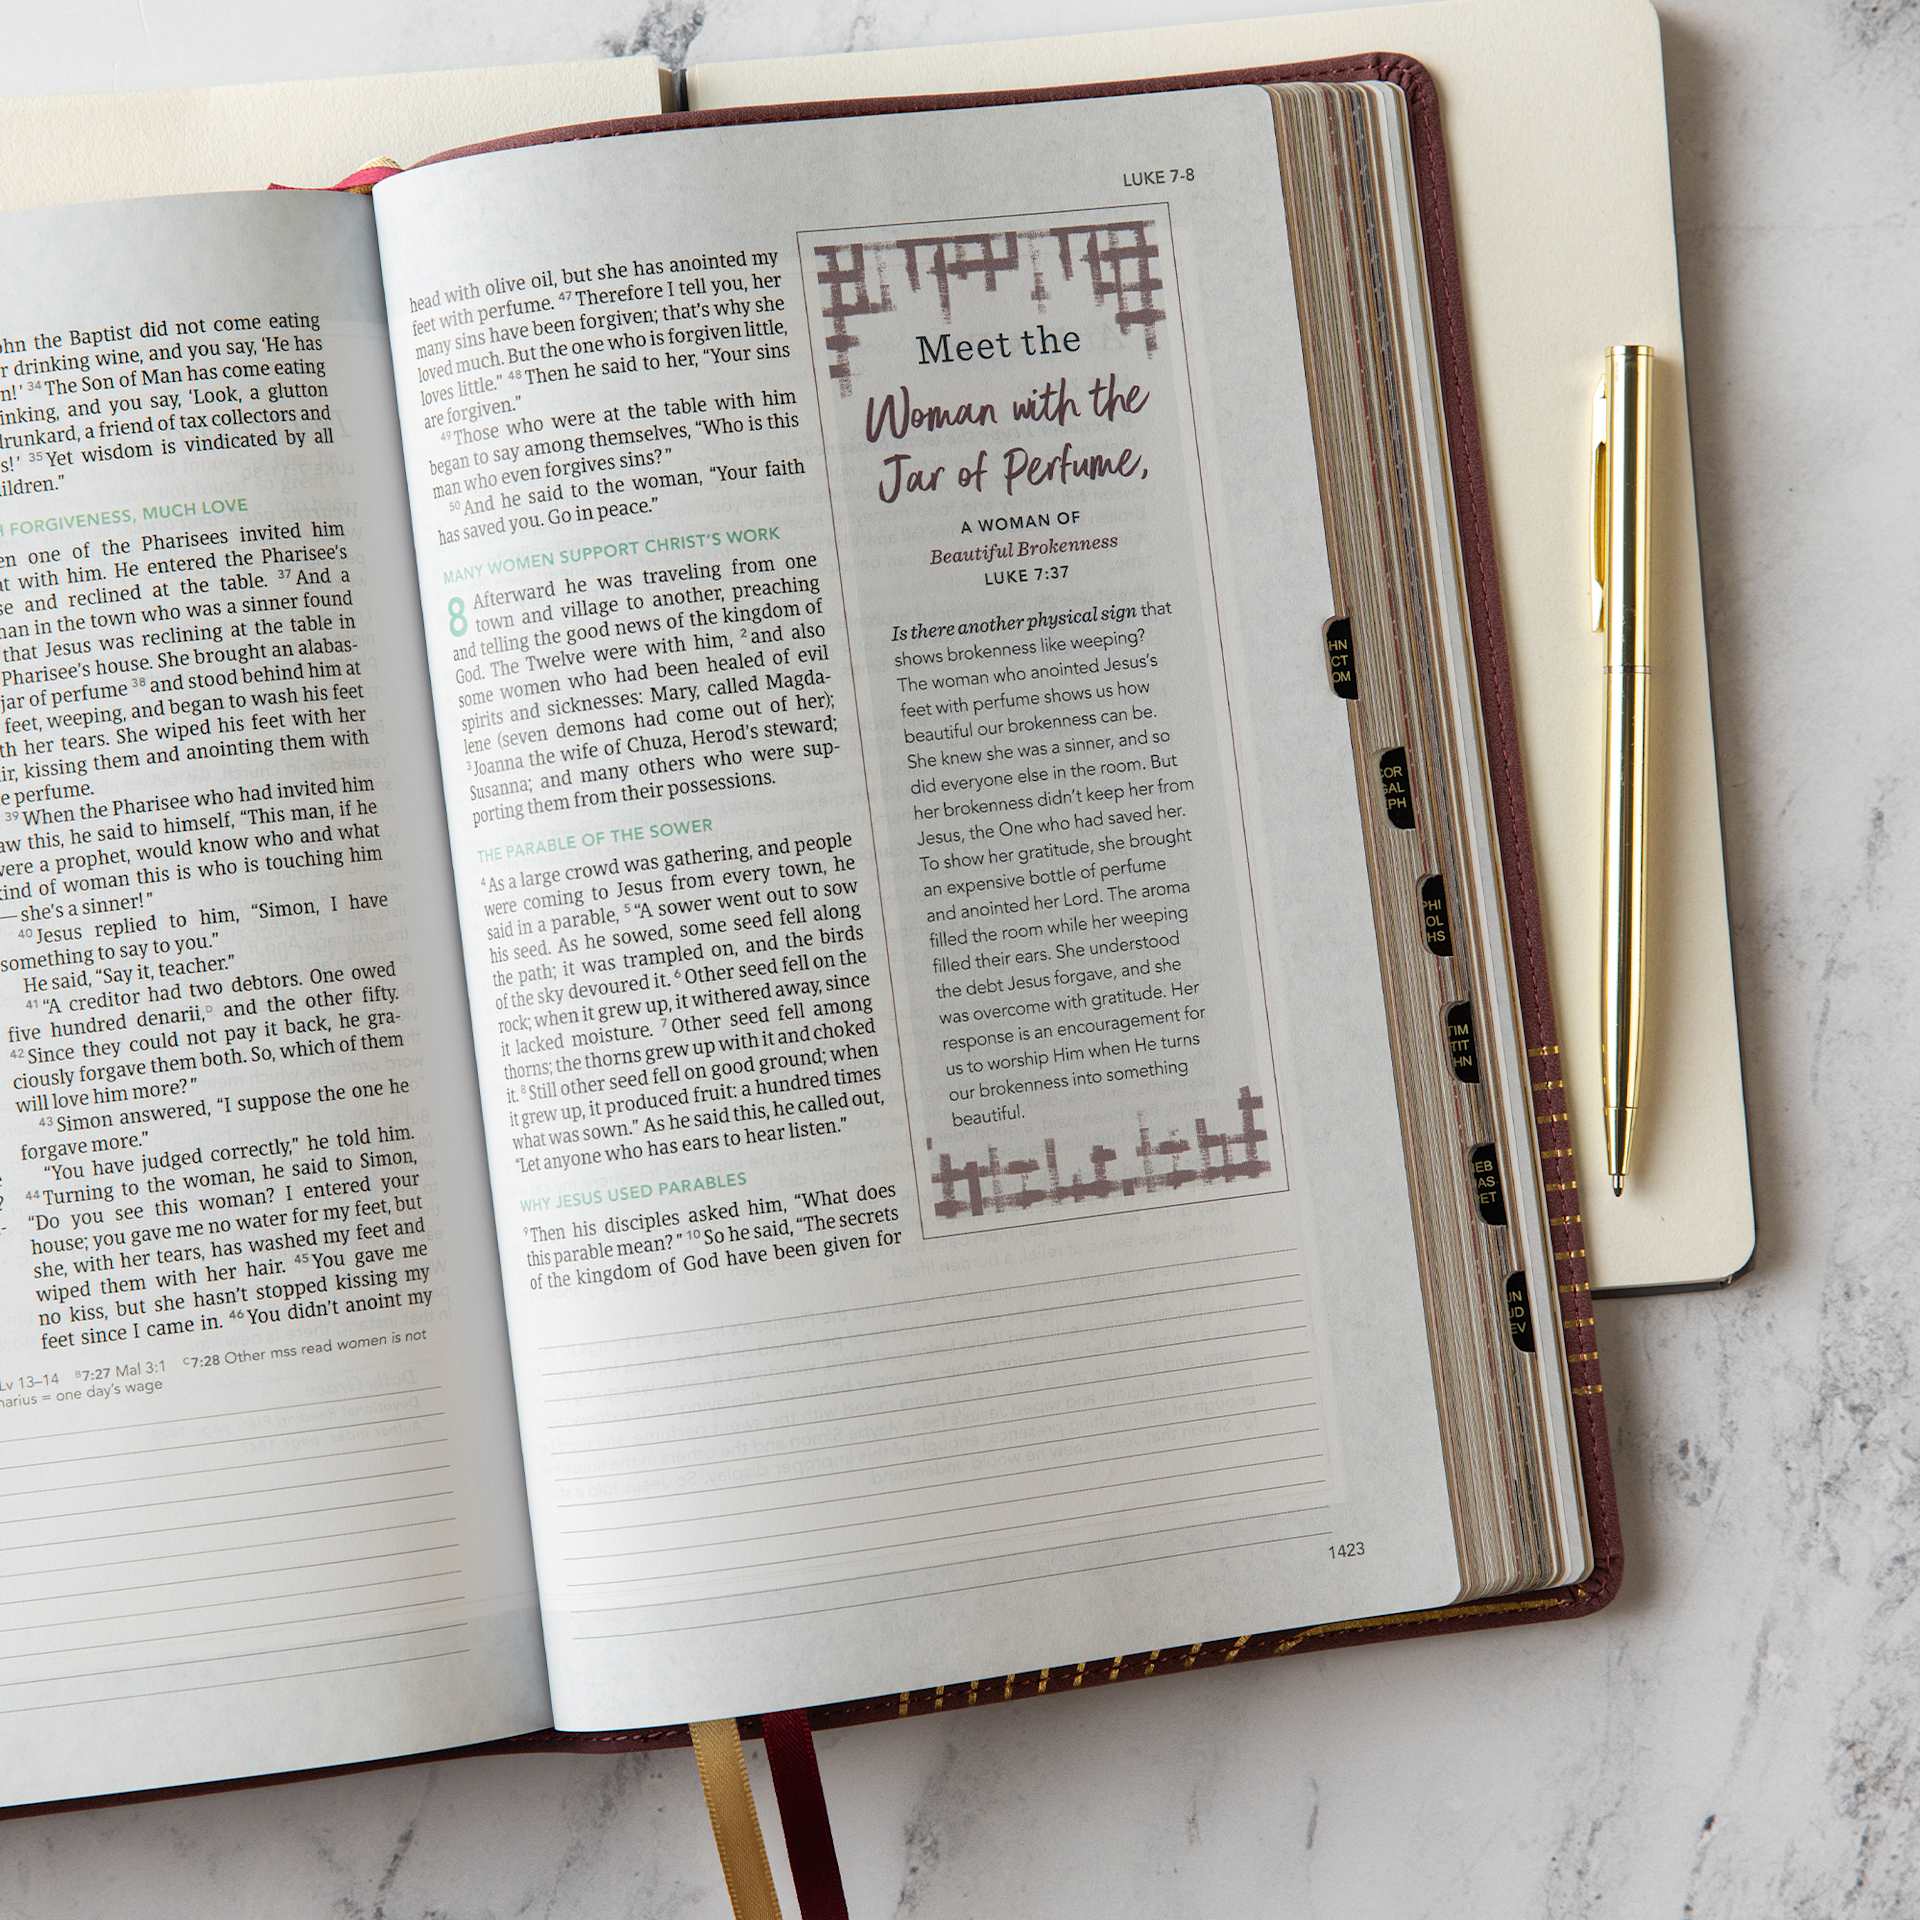 John the Baptist did not come eating
or drinking wine, and you say, ‘He has
³⁴The Son of Man has come eating
and you say, ‘Look, a glutton
a friend of tax collectors and
³⁵Yet wisdom is vindicated by all
FORGIVENESS, MUCH LOVE
one of the Pharisees invited him
with him. He entered the Pharisee’s
and reclined at the table. ³⁷And a
in the town who was a sinner found
that Jesus was reclining at the table in
Pharisee’s house. She brought an alabas-
jar of perfume ³⁸and stood behind him at
feet, weeping, and began to wash his feet
her tears. She wiped his feet with her
kissing them and anointing them with
perfume.
³⁹When the Pharisee who had invited him
this, he said to himself, “This man, if he
were a prophet, would know who and what
kind of woman this is who is touching him
— she’s a sinner!”
⁴⁰Jesus replied to him, “Simon, I have
something to say to you.”
He said, “Say it, teacher.”
⁴¹“A creditor had two debtors. One owed
five hundred denarii,ᴰ and the other fifty.
⁴²Since they could not pay it back, he gra-
ciously forgave them both. So, which of them
will love him more?”
⁴³Simon answered, “I suppose the one he
forgave more.”
“You have judged correctly,” he told him.
⁴⁴Turning to the woman, he said to Simon,
“Do you see this woman? I entered your
house; you gave me no water for my feet, but
she, with her tears, has washed my feet and
wiped them with her hair. ⁴⁵You gave me
no kiss, but she hasn’t stopped kissing my
feet since I came in. ⁴⁶You didn’t anoint my
Lv 13–14 ᴮ7:27 Mal 3:1 ᶜ7:28 Other mss read women is not
= one day’s wage
LUKE 7-8
head with olive oil, but she has anointed my
feet with perfume. ⁴⁷Therefore I tell you, her
many sins have been forgiven; that’s why she
loved much. But the one who is forgiven little,
loves little.” ⁴⁸Then he said to her, “Your sins
are forgiven.”
⁴⁹Those who were at the table with him
began to say among themselves, “Who is this
man who even forgives sins?”
⁵⁰And he said to the woman, “Your faith
has saved you. Go in peace.”
MANY WOMEN SUPPORT CHRIST’S WORK
8 Afterward he was traveling from one
town and village to another, preaching
and telling the good news of the kingdom of
God. The Twelve were with him, ²and also
some women who had been healed of evil
spirits and sicknesses: Mary, called Magda-
lene (seven demons had come out of her);
³Joanna the wife of Chuza, Herod’s steward;
Susanna; and many others who were sup-
porting them from their possessions.
THE PARABLE OF THE SOWER
⁴As a large crowd was gathering, and people
were coming to Jesus from every town, he
said in a parable, ⁵“A sower went out to sow
his seed. As he sowed, some seed fell along
the path; it was trampled on, and the birds
of the sky devoured it. ⁶Other seed fell on the
rock; when it grew up, it withered away, since
it lacked moisture. ⁷Other seed fell among
thorns; the thorns grew up with it and choked
it. ⁸Still other seed fell on good ground; when
it grew up, it produced fruit: a hundred times
what was sown.” As he said this, he called out,
“Let anyone who has ears to hear listen.”
WHY JESUS USED PARABLES
⁹Then his disciples asked him, “What does
this parable mean?” ¹⁰So he said, “The secrets
of the kingdom of God have been given for
Meet the
Woman with the
Jar of Perfume,
A WOMAN OF
Beautiful Brokenness
LUKE 7:37
Is there another physical sign that
shows brokenness like weeping?
The woman who anointed Jesus’s
feet with perfume shows us how
beautiful our brokenness can be.
She knew she was a sinner, and so
did everyone else in the room. But
her brokenness didn’t keep her from
Jesus, the One who had saved her.
To show her gratitude, she brought
an expensive bottle of perfume
and anointed her Lord. The aroma
filled the room while her weeping
filled their ears. She understood
the debt Jesus forgave, and she
was overcome with gratitude. Her
response is an encouragement for
us to worship Him when He turns
our brokenness into something
beautiful.
1423
HN
CT
OM
COR
GAL
EPH
PHI
OL
HS
TIM
TIT
HN
EB
AS
PET
JN
JD
EV